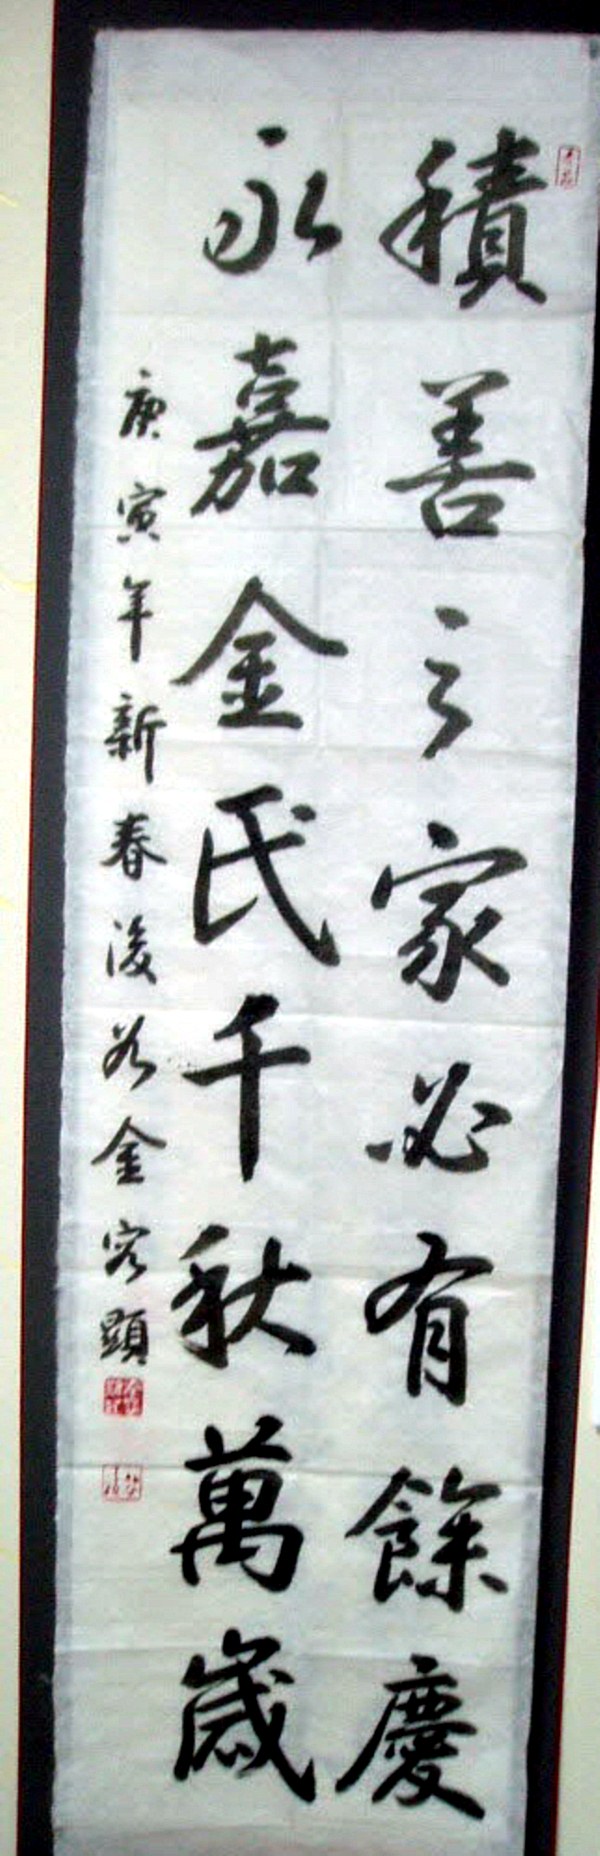 積善之家必有餘慶
永嘉金氏千秋萬歲
庚寅年新春後谷金容顯